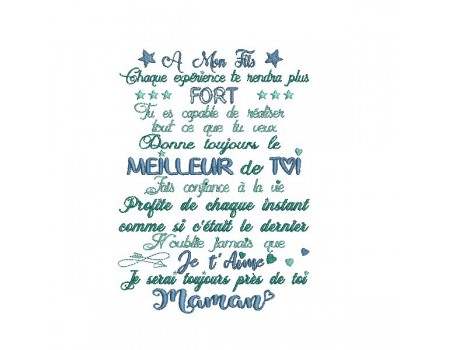 A Mon Fils
Chaque expérience te rendra plus
FORT
Tu es capable de réaliser
tout ce que tu veux
Donne toujours le
MEILLEUR de TOI
Fais confiance à la vie
Profite de chaque instant
comme si c'était le dernier
N'oublie jamais que
Je t'Aime
Je serai toujours près de toi
Maman